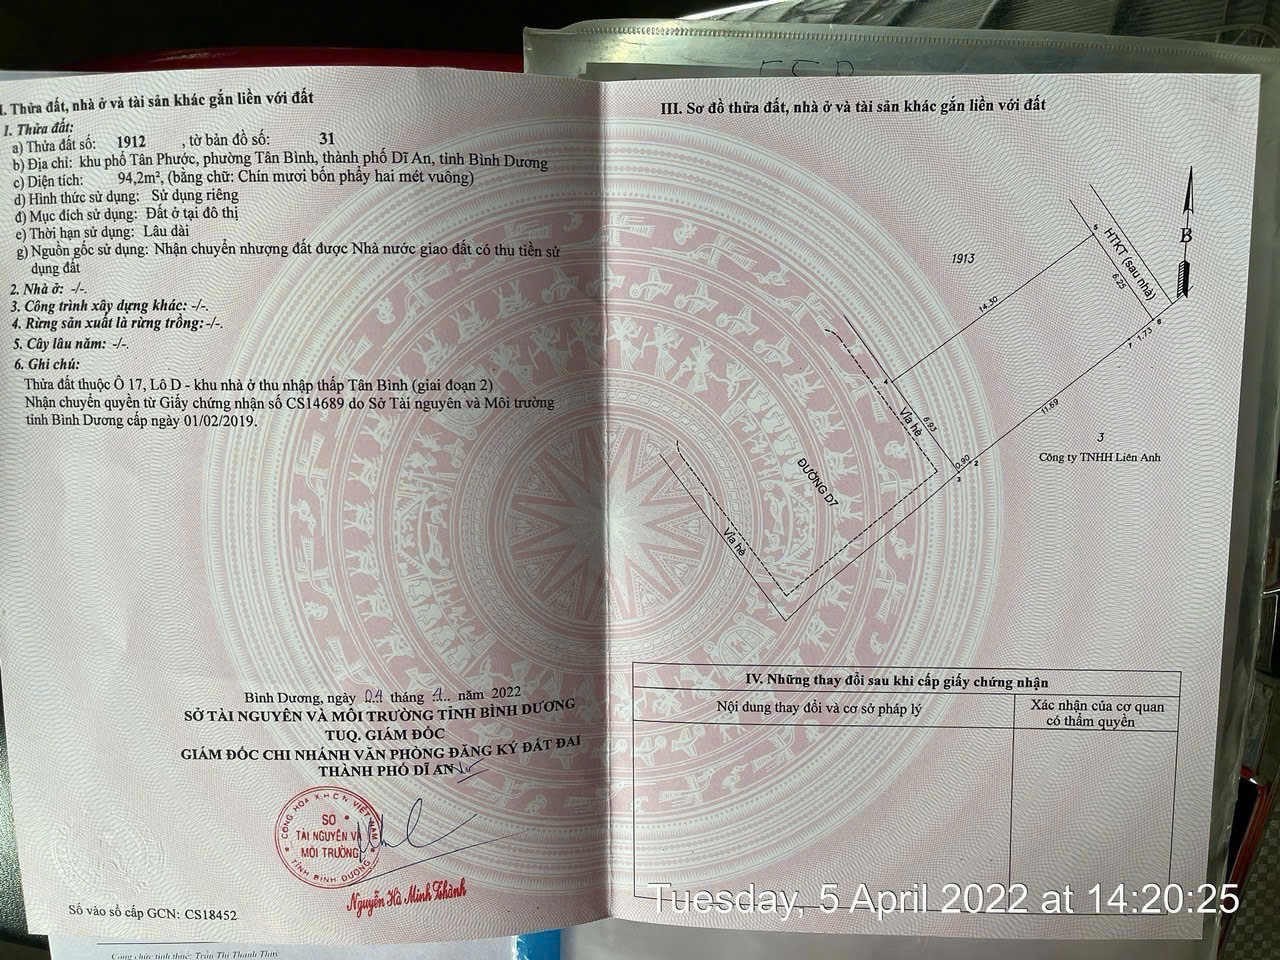 I. Thửa đất, nhà ở và tài sản khác gắn liền với đất
1. Thửa đất:
a) Thửa đất số: 1912 , tờ bản đồ số: 31
b) Địa chỉ: khu phố Tân Phước, phường Tân Bình, thành phố Dĩ An, tỉnh Bình Dương
c) Diện tích: 94,2m², (bằng chữ: Chín mươi bốn phẩy hai mét vuông)
d) Hình thức sử dụng: Sử dụng riêng
đ) Mục đích sử dụng: Đất ở tại đô thị
e) Thời hạn sử dụng: Lâu dài
g) Nguồn gốc sử dụng: Nhận chuyển nhượng đất được Nhà nước giao đất có thu tiền sử
dụng đất
2. Nhà ở: -/-.
3. Công trình xây dựng khác: -/-.
4. Rừng sản xuất là rừng trồng: -/-.
5. Cây lâu năm: -/-.
6. Ghi chú:
Thửa đất thuộc Ô 17, Lô D - khu nhà ở thu nhập thấp Tân Bình (giai đoạn 2)
Nhận chuyển quyền từ Giấy chứng nhận số CS14689 do Sở Tài nguyên và Môi trường
tỉnh Bình Dương cấp ngày 01/02/2019.
Bình Dương, ngày 04 tháng 4.. năm 2022
SỞ TÀI NGUYÊN VÀ MÔI TRƯỜNG TỈNH BÌNH DƯƠNG
TUQ. GIÁM ĐỐC
GIÁM ĐỐC CHI NHÁNH VĂN PHÒNG ĐĂNG KÝ ĐẤT ĐAI
THÀNH PHỐ DĨ AN
CỘNG HÒA X.H.C.N VIỆT NAM
SỞ
TÀI NGUYÊN VÀ
MÔI TRƯỜNG
TỈNH BÌNH DƯƠNG
Nguyễn Hà Minh Thành
Số vào sổ cấp GCN: CS18452
Công chức tính thuế: Trần Thị Thanh Thuý
III. Sơ đồ thửa đất, nhà ở và tài sản khác gắn liền với đất
B
5
HTKT (sau nhà)
1913
6.25
14.30
6
1.73
1
4
6.93
Vỉa hè
11.69
3
Công ty TNHH Liên Anh
0.90
2
3
ĐƯỜNG D7
Vỉa hè
IV. Những thay đổi sau khi cấp giấy chứng nhận
Nội dung thay đổi và cơ sở pháp lý
Xác nhận của cơ quan
có thẩm quyền
Tuesday, 5 April 2022 at 14:20:25